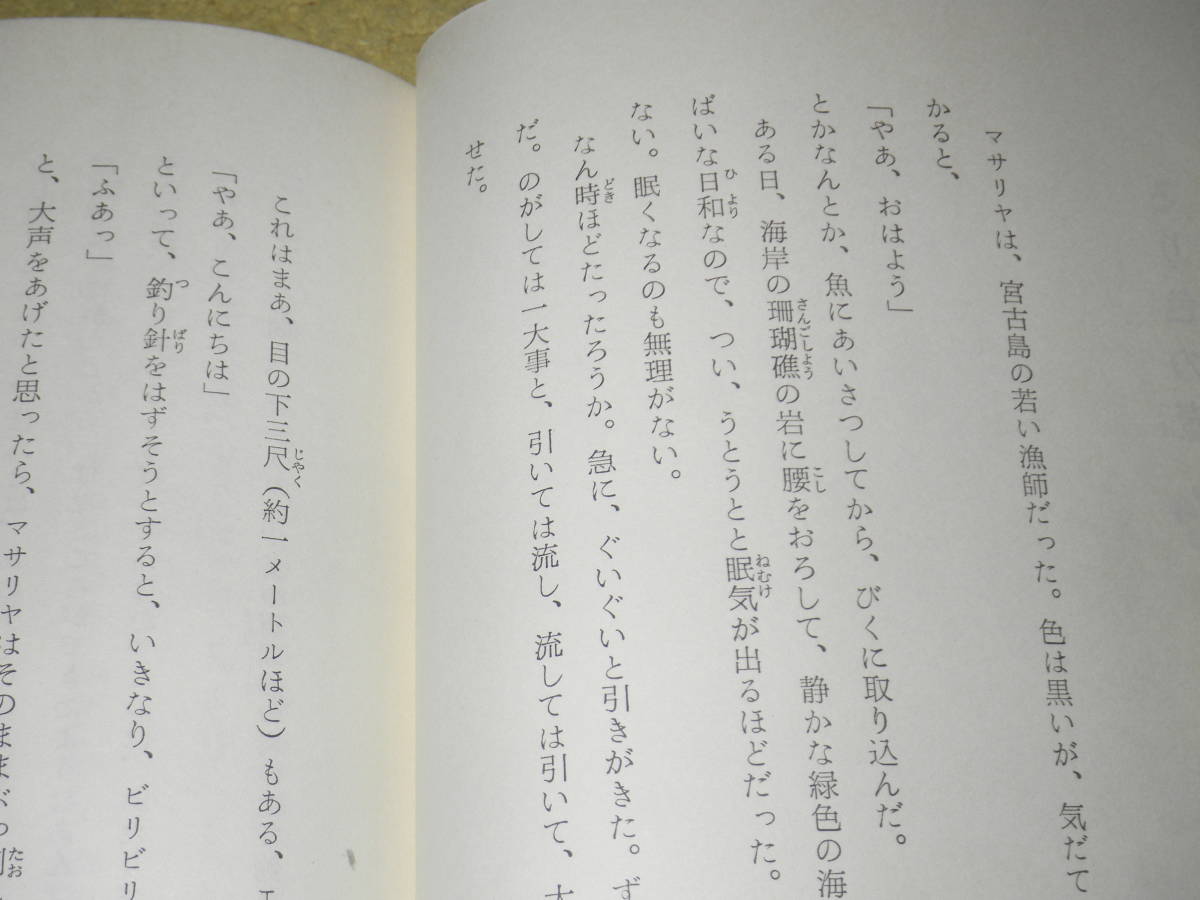 マサリヤは、宮古島の若い漁師だった。色は黒いが、気だて
かると、
「やあ、おはよう」
とかなんとか、魚にあいさつしてから、びくに取り込んだ。
ある日、海岸の珊瑚礁の岩に腰をおろして、静かな緑色の海
ばいな日和なので、つい、うとうとと眠気が出るほどだった。
ない。眠くなるのも無理がない。
なん時ほどたったろうか。急に、ぐいぐいと引きがきた。ず
だ。のがしては一大事と、引いては流し、流しては引いて、大
せた。
これはまあ、目の下三尺（約一メートルほど）もある、エ
「やあ、こんにちは」
といって、釣り針をはずそうとすると、いきなり、ビリビリ
「ふあっ」
と、大声をあげたと思ったら、マサリヤはそのままぶっ倒